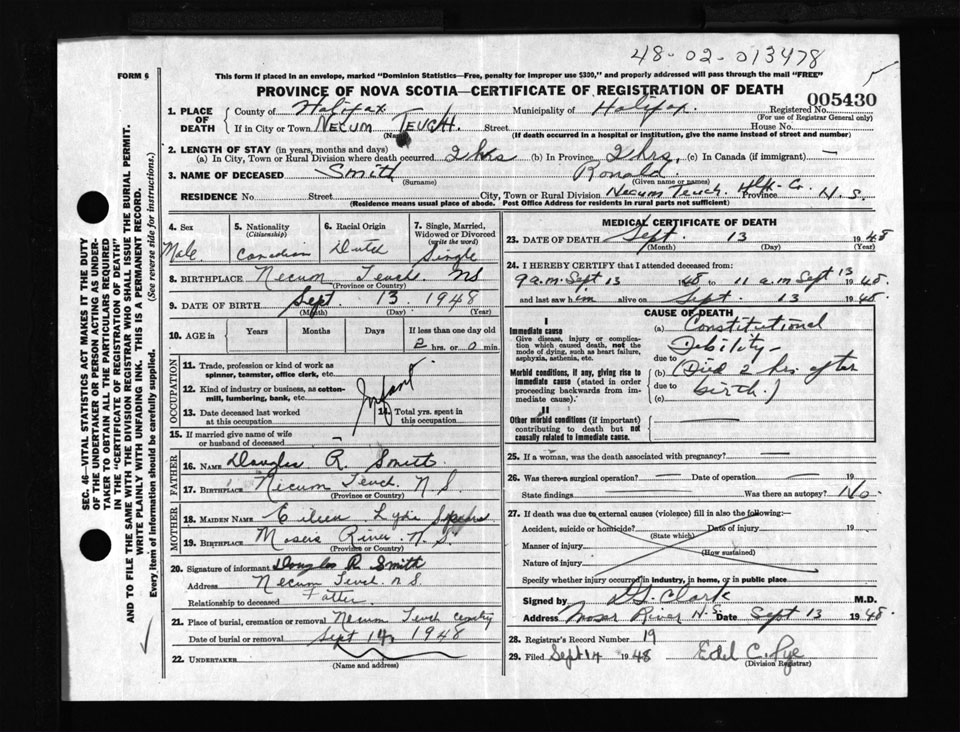 48-02-013478
FORM 6
This form if placed in an envelope, marked "Dominion Statistics—Free, penalty for improper use $300," and properly addressed will pass through the mail "FREE"
PROVINCE OF NOVA SCOTIA—CERTIFICATE OF REGISTRATION OF DEATH
005430
1. PLACE OF DEATH
County of Halifax Municipality of Halifax. Registered No.
(For use of Registrar General only)
If in City or Town NECUM TEUCH. Street House No.
(Name) (If death occurred in a hospital or institution, give the name instead of street and number)
2. LENGTH OF STAY (in years, months and days)
(a) In City, Town or Rural Division where death occurred 2 hrs (b) In Province 2 hrs, (c) In Canada (if immigrant) —
3. NAME OF DECEASED Smith Ronald.
(Surname) (Given name or names)
RESIDENCE No. Street City, Town or Rural Division Necum Teuch. Hfx. Co. Province N.S.
(Residence means usual place of abode. Post Office Address for residents in rural parts not sufficient)
4. Sex
Male
5. Nationality
(Citizenship)
Canadian
6. Racial Origin
Dutch
7. Single, Married, Widowed or Divorced
(write the word)
Single
8. BIRTHPLACE Necum Teuch NS
(Province or Country)
9. DATE OF BIRTH Sept. 13 1948
(Month) (Day) (Year)
10. AGE in
Years Months Days If less than one day old
2 hrs. or 0 min.
OCCUPATION
11. Trade, profession or kind of work as spinner, teamster, office clerk, etc.
12. Kind of industry or business, as cotton-mill, lumbering, bank, etc.
Infant
13. Date deceased last worked at this occupation
14. Total yrs. spent in this occupation
15. If married give name of wife or husband of deceased —
FATHER
16. NAME Douglas R. Smith
17. BIRTHPLACE Necum Teuch. N.S.
(Province or Country)
MOTHER
18. MAIDEN NAME Eileen
19. BIRTHPLACE Mosers River. N.S.
(Province or Country)
20. Signature of informant Douglas R Smith
Address Necum Teuch. N.S.
Relationship to deceased Father
21. Place of burial, cremation or removal Necum Teuch
Date of burial or removal Sept 14, 1948
22. UNDERTAKER
(Name and address)
MEDICAL CERTIFICATE OF DEATH
23. DATE OF DEATH Sept. 13 1948
(Month) (Day) (Year)
24. I HEREBY CERTIFY that I attended deceased from:
9 a.m. Sept. 13 1948 to 11 a.m Sept 13 1948
and last saw him alive on Sept. 13 1948
CAUSE OF DEATH
I
Immediate cause
Give disease, injury or complication which caused death, not the mode of dying, such as heart failure, asphyxia, asthenia, etc.
(a) Constitutional
Debility—
due to
Morbid conditions, if any, giving rise to immediate cause (stated in order proceeding backwards from immediate cause).
(b) (Died 2 hrs after
due to
birth.)
(c)
II
Other morbid conditions (if important) contributing to death but not causally related to immediate cause.
25. If a woman, was the death associated with pregnancy? —
26. Was there a surgical operation? — Date of operation — 19
State findings Was there an autopsy? No.
27. If death was due to external causes (violence) fill in also the following:—
Accident, suicide or homicide? Date of injury 19
(State which)
Manner of injury
(How sustained)
Nature of injury
Specify whether injury occurred in industry, in home, or in public place
Signed by Clark M.D.
Address Moser River N.S. Date Sept 13 1948
28. Registrar's Record Number 19
29. Filed Sept 14 1948 C. Pye
(Division Registrar)
SEC. 46—VITAL STATISTICS ACT MAKES IT THE DUTY
OF THE UNDERTAKER OR PERSON ACTING AS UNDER-
TAKER TO OBTAIN ALL THE PARTICULARS REQUIRED
IN THE "CERTIFICATE OF REGISTRATION OF DEATH"
AND TO FILE THE SAME WITH THE DIVISION REGISTRAR WHO SHALL ISSUE THE BURIAL PERMIT.
WRITE PLAINLY WITH UNFADING INK. THIS IS A PERMANENT RECORD.
Every item of information should be carefully supplied. (See reverse side for instructions.)